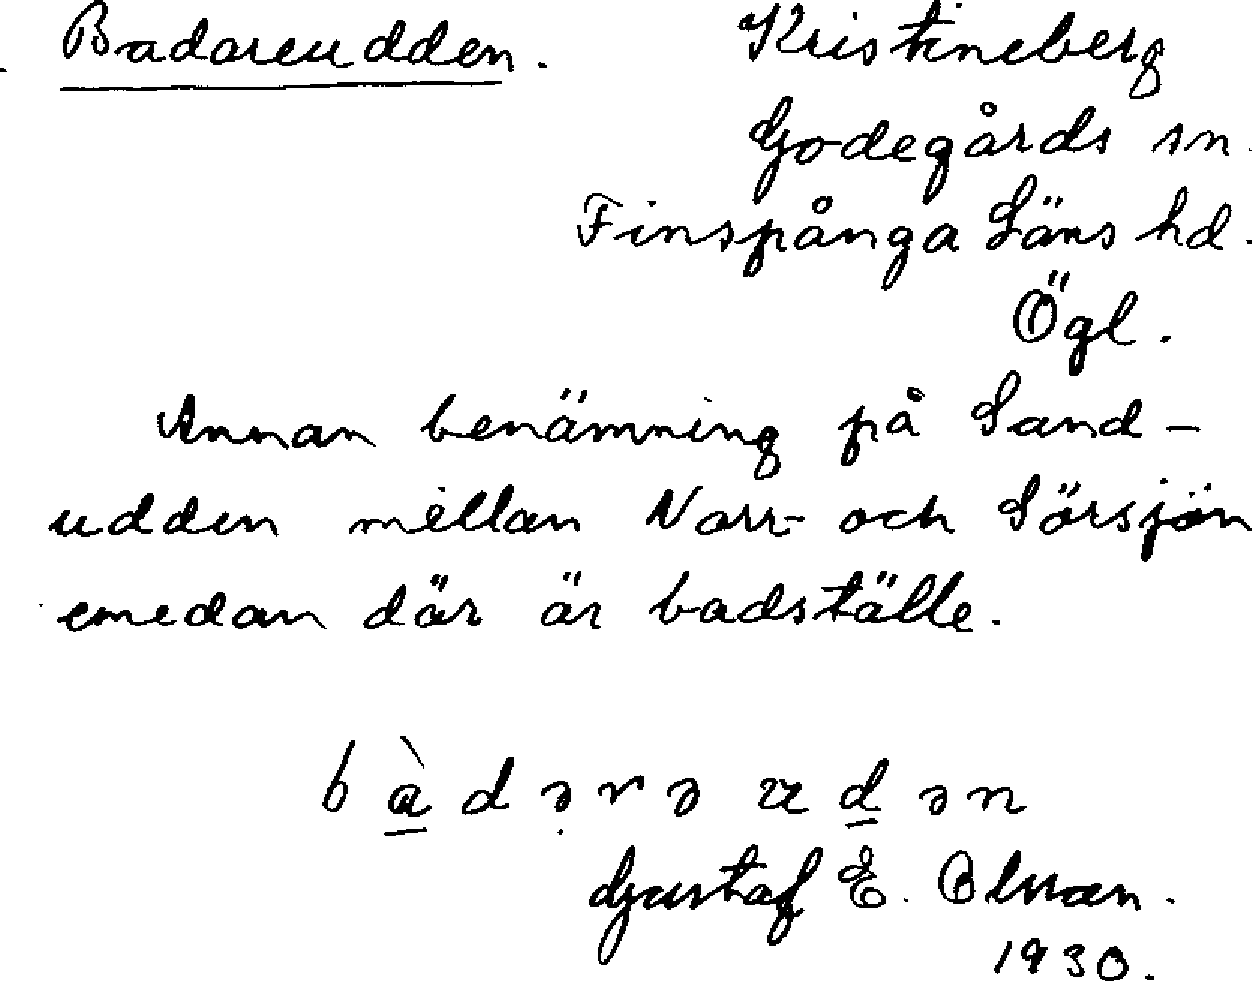 Badareudden. Kristineberg
Godegårds sn.
Finspånga Läns hd.
Ögl.
Annan benämning på Sand-
udden mellan Norr- och Sörsjön
emedan där är badställe.
bàdərə udən
Gustaf E.
1930.